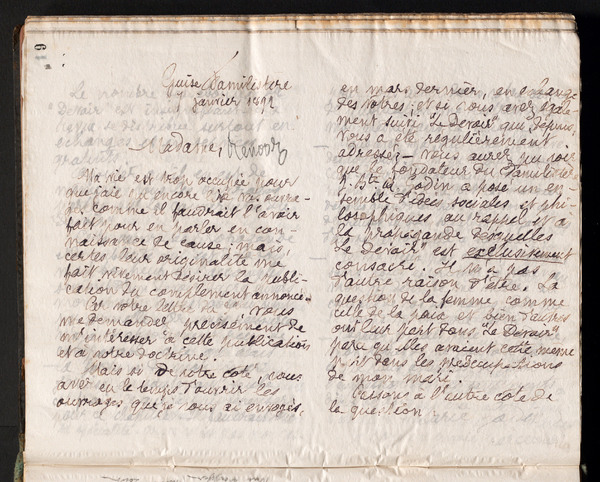 19
Guise Familistere
janvier 1892
Madame,
Ma vie est trop occupée pour
que j'aie pu encore lire vos ouvra-
ges comme il faudrait l'avoir
fait pour en parler en con-
naissance de cause; mais,
certes leur originalité me
fait vivement désirer la publi-
cation du complément annoncé.
Par votre lettre du vous
me demandez précisément de
m'intéresser à cette publication
et à votre doctrine.
Mais si de votre côté, vous
avez eu le temps d'ouvrir les
ouvrages que je vous ai envoyés,
en mars dernier, en échange
des vôtres; et si vous avez égale-
ment suivi "le Devoir" qui, depuis,
vous a été régulièrement
adressé,— vous aurez pu voir
que le fondateur du Familistère
J. Bte A. Godin a posé un en-
semble d'idées sociales et phi-
losophiques au rappel et à
la propagande desquelles
"Le Devoir" est exclusivement
consacré. Il n'a pas
d'autre raison d'être. La
question de la femme comme
celle de la paix et bien d'autres
ont leur part dans "le Devoir"
parce qu'elles avaient cette même
part dans les préoccupations
de mon mari.
Passons à l'autre côté de
la question